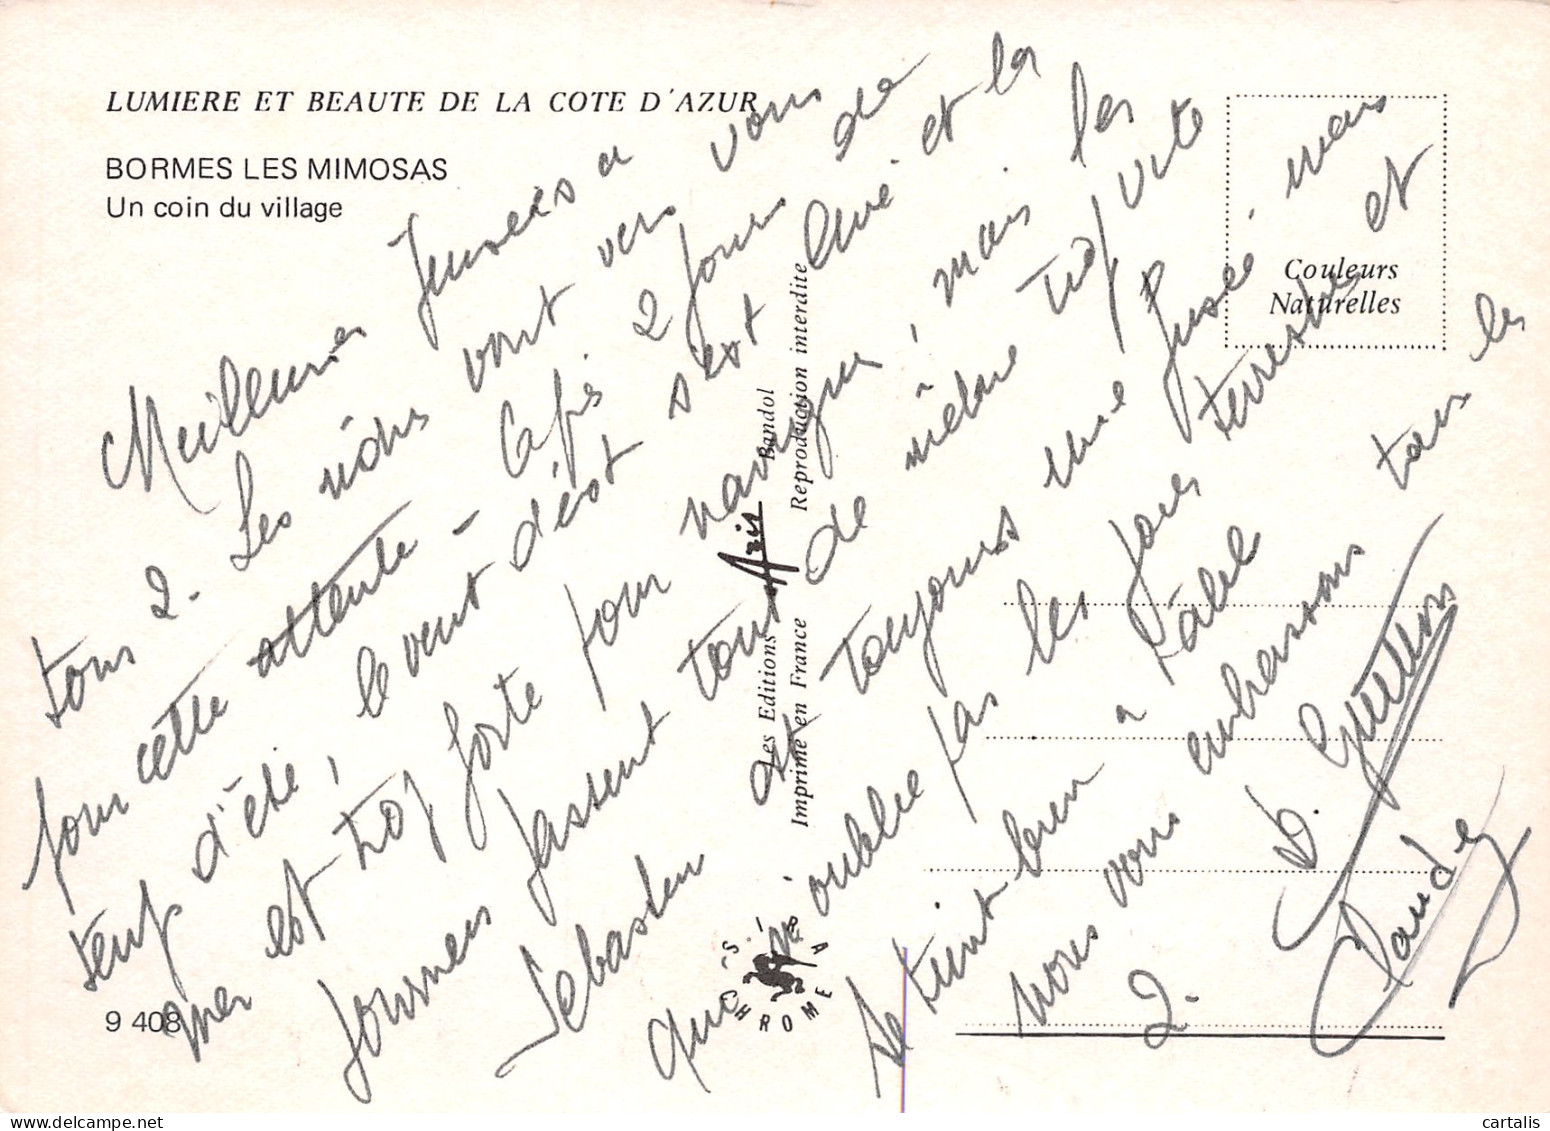 LUMIERE ET BEAUTE DE LA COTE D'AZUR
BORMES LES MIMOSAS
Un coin du village
Meilleures pensées a vous
tous 2. Les nôtres vont vers vous
pour cette attente - Après 2 jours de
temps d'été, le vent d'est s'est levé et la
mer est trop forte pour naviguer, mais les
journees passent tout de même trop vite
Sebastien est toujours une fusée mais
qui n'oublie pas les jours terrestres et
se tient bien à table
nous vous embrassons tous les
2.
D. Guillon
Daudey
Couleurs
Naturelles
Les Editions Aris Bandol
Imprimé en France Reproduction interdite
S.I.P.A
CHROME
9 408
cartalis